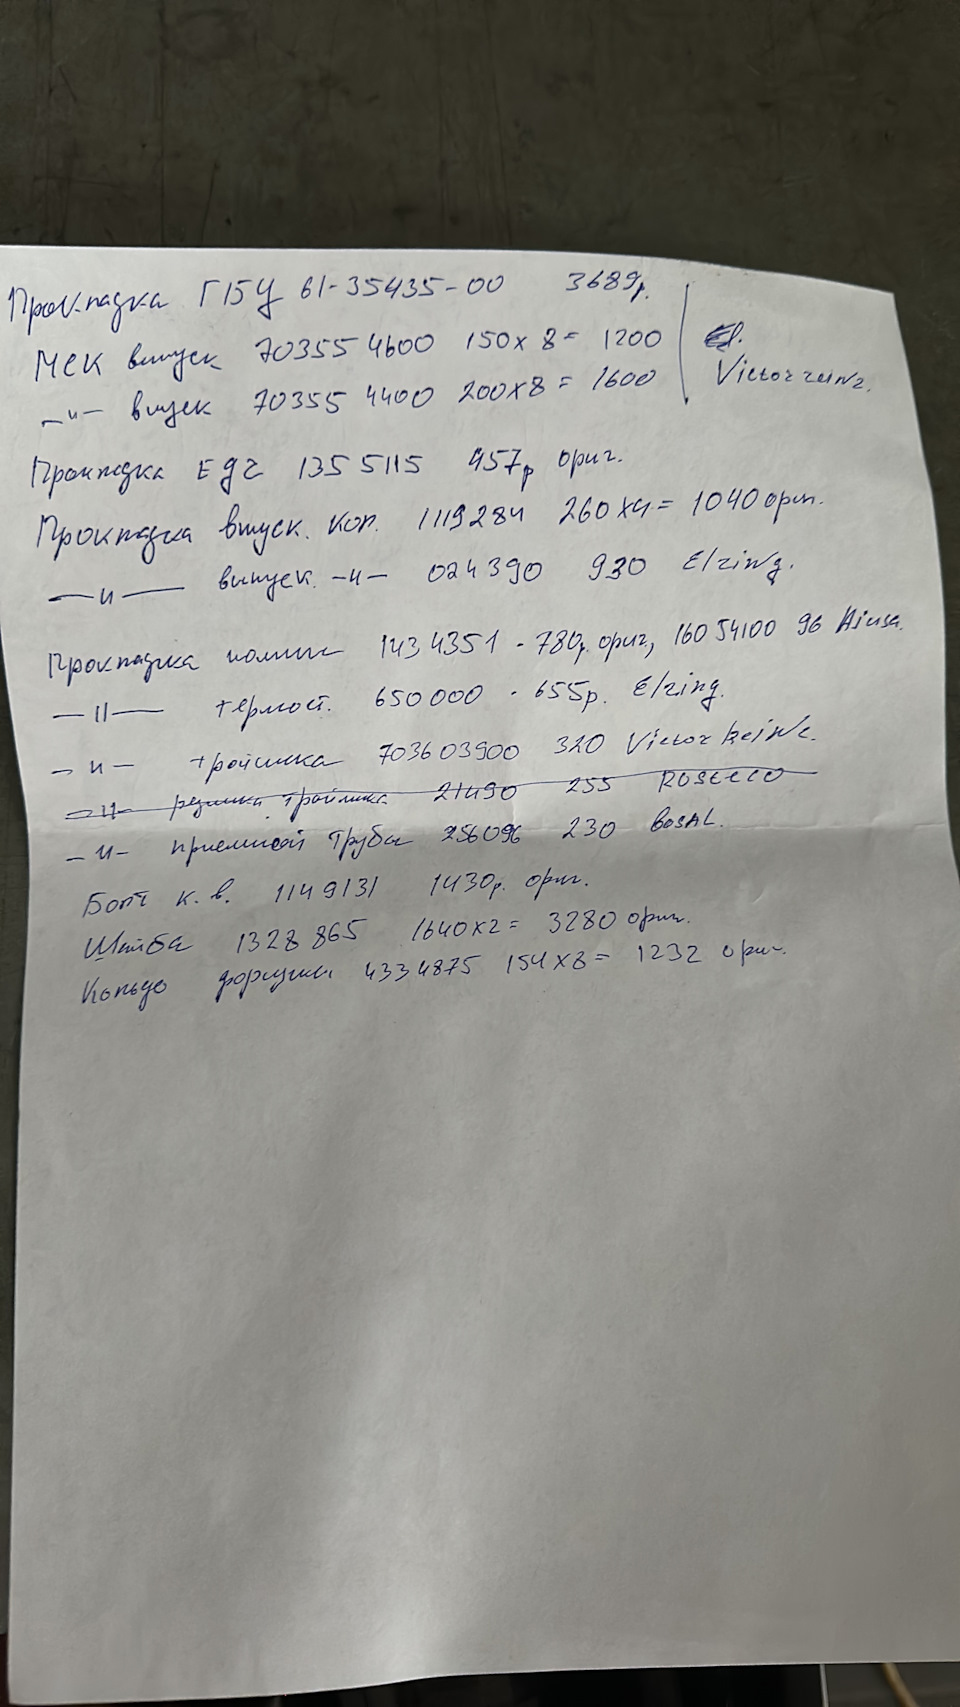 Прокладка ГБЦ 61-35435-00 3689р.
МСК впуск 703554600 150х8= 1200 El.
—"— випуск 703554400 200х8 = 1600 Victor reinz.
Прокладка ЕДС 1355115 957р ориг.
Прокладка впуск. кол. 1119284 260х4= 1040 ориг.
—"— випуск. —"— 024390 930 Elzing.
Прокладка помпы 1434351 - 780р. ориг, 16054100 96 Ajusa.
—"— термост. 650000 - 655р. Elzing.
—"— тройника 703603900 320 Victor Reinz.
—"— резинка тройника 21490 255 Roseeco
—"— приемной трубы 256096 230 BOSAL.
Болт к. в. 1149131 1430р. ориг.
Шайба 1328865 1640х2= 3280 ориг.
Кольцо форсунки 4334875 154х8= 1232 ориг.